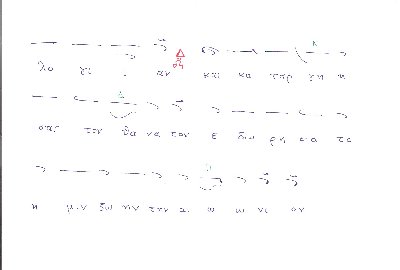 λο γι . αν και κα ταρ γη η
σας τον θα να τον ε δω ρη σα το
η μιν ζω ην την αι ω ω νι ον